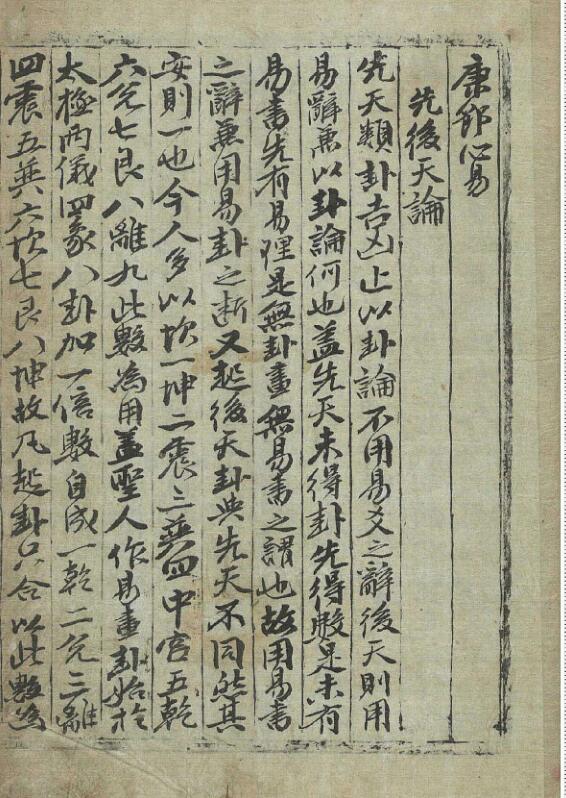 康節心易
先後天論
先天類卦吉凶止以卦論不用易爻之辭後天則用
易辭兼以卦論何也盖先天未得卦先得數是未有
易書先有易理是無卦畫無易書之謂也故用易書
之辭兼用易卦之断又起後天卦與先天不同然其
安則一也今人多以坎一坤二震三巽四中宮五乾
六兌七艮八離九此數為用盖聖人作易畫卦始於
太極兩儀四象八卦加一倍數自成一乾二兌三離
四震五巽六坎七艮八坤故凡起卦只合以此數為